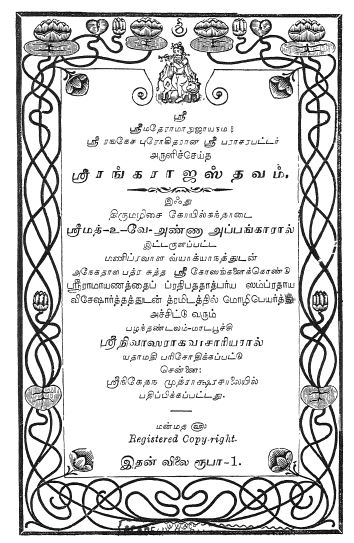 ஸ்ரீ
ஸ்ரீமதேராமாநுஜாயநம:
ஸ்ரீ ரங்கேச புரோகிதரான ஸ்ரீ பராசரபட்டர்
அருளிச்செய்த
ஸ்ரீரங்கராஜஸ்தவம்.
இஃது
திருமழிசை கோயில்கந்தாடை
ஸ்ரீமத்-உ-வே-அண்ணா அப்பங்காரால்
இட்டருளப்பட்ட
மணிப்ரவாள வ்யாக்யாநத்துடன்
அநேகதாள பத்ர சுத்த ஸ்ரீ கோசங்களைக்கொண்டு
ஸ்ரீராமாயணத்தைப் ப்ரதிபததாத்பர்ய ஸம்ப்ரதாய
விசேஷார்த்தத்துடன் த்ரமிடத்தில் மொழிபெயர்த்து
அச்சிட்டு வரும்
பழந்தண்டலம்-மாடபூச்சி
ஸ்ரீநிவாஸராகவாசாரியரால்
யதாமதி பரிசோதிக்கப்பட்டு
சென்னை:
ஸ்ரீநிகேதந முத்ராக்ஷரசாலையில்
பதிப்பிக்கப்பட்டது.
மன்மத ௵
Registered Copy-right.
இதன் விலை ரூபா-1.